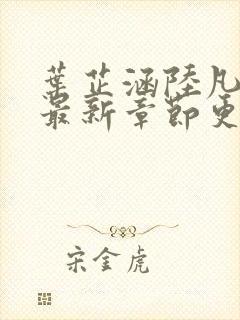 葉芷涵陸凡
最新章節更
宋金虎